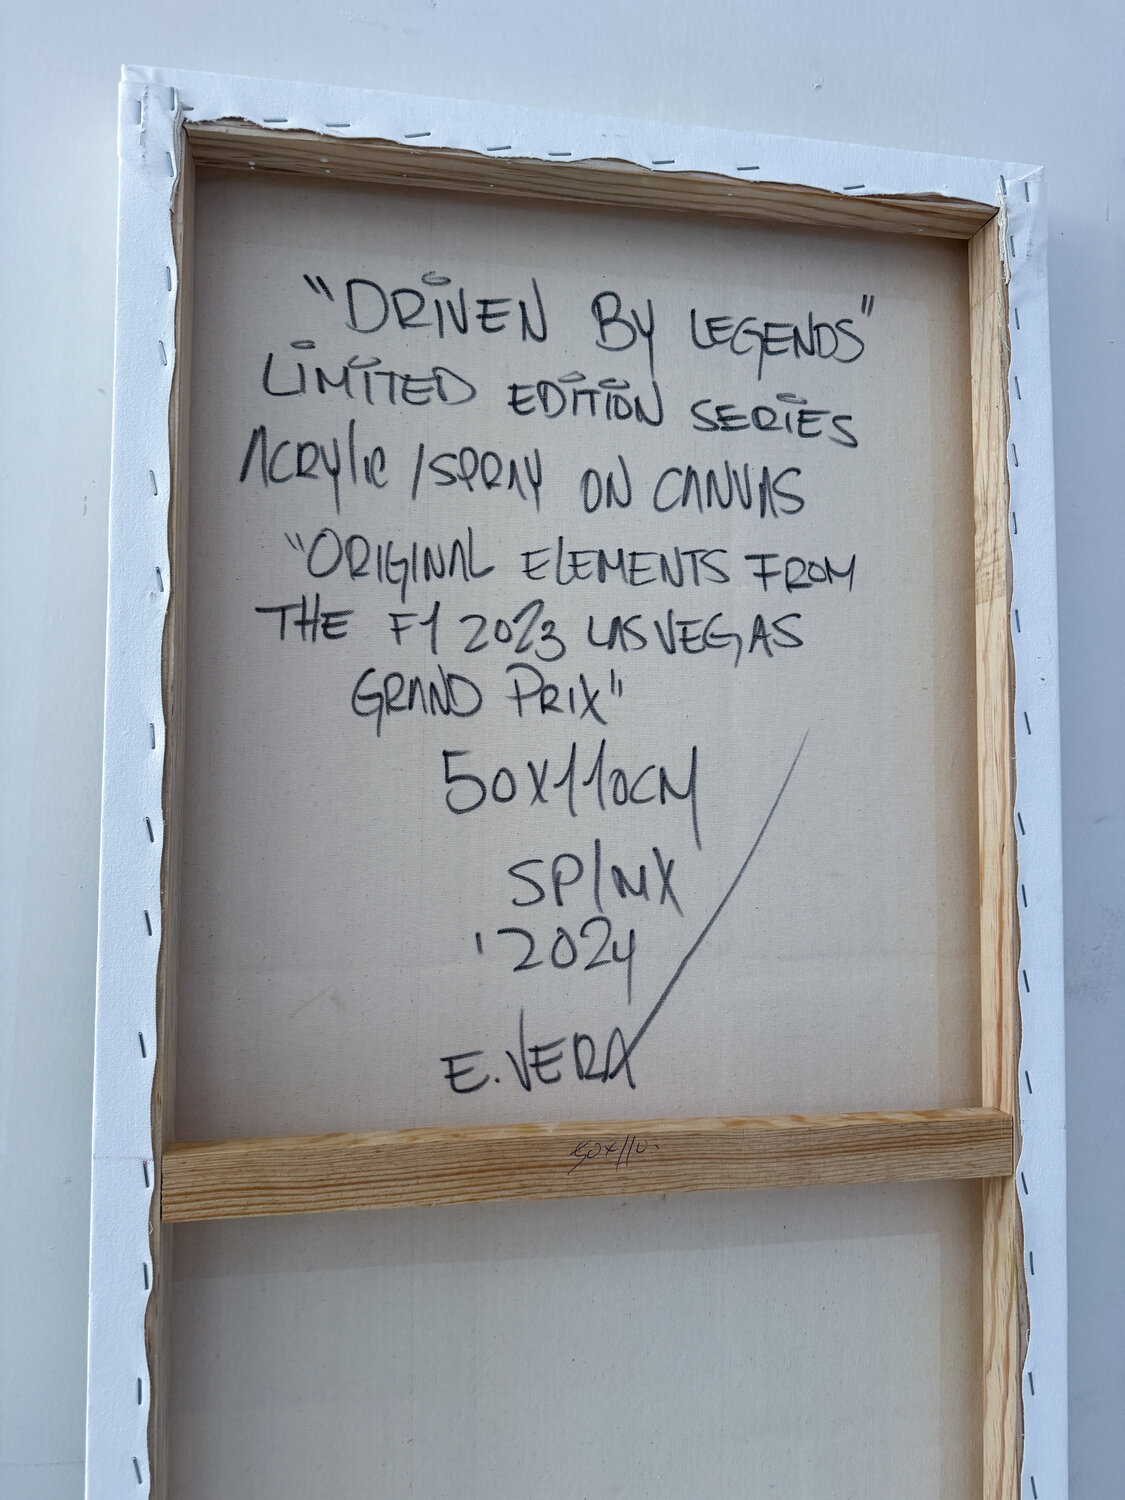 "DRiVEN BY LEGENDS"
LiMiTED EDiTiON SERiES
ACRYlic / SPRAY ON CANVAS
"ORIGINAL ElEMENTS FROM
THE F1 2023 LAS VEGAS
GRAND PRIX"
50x110CM
SP/MX
'2024
E. VERA
50x110.